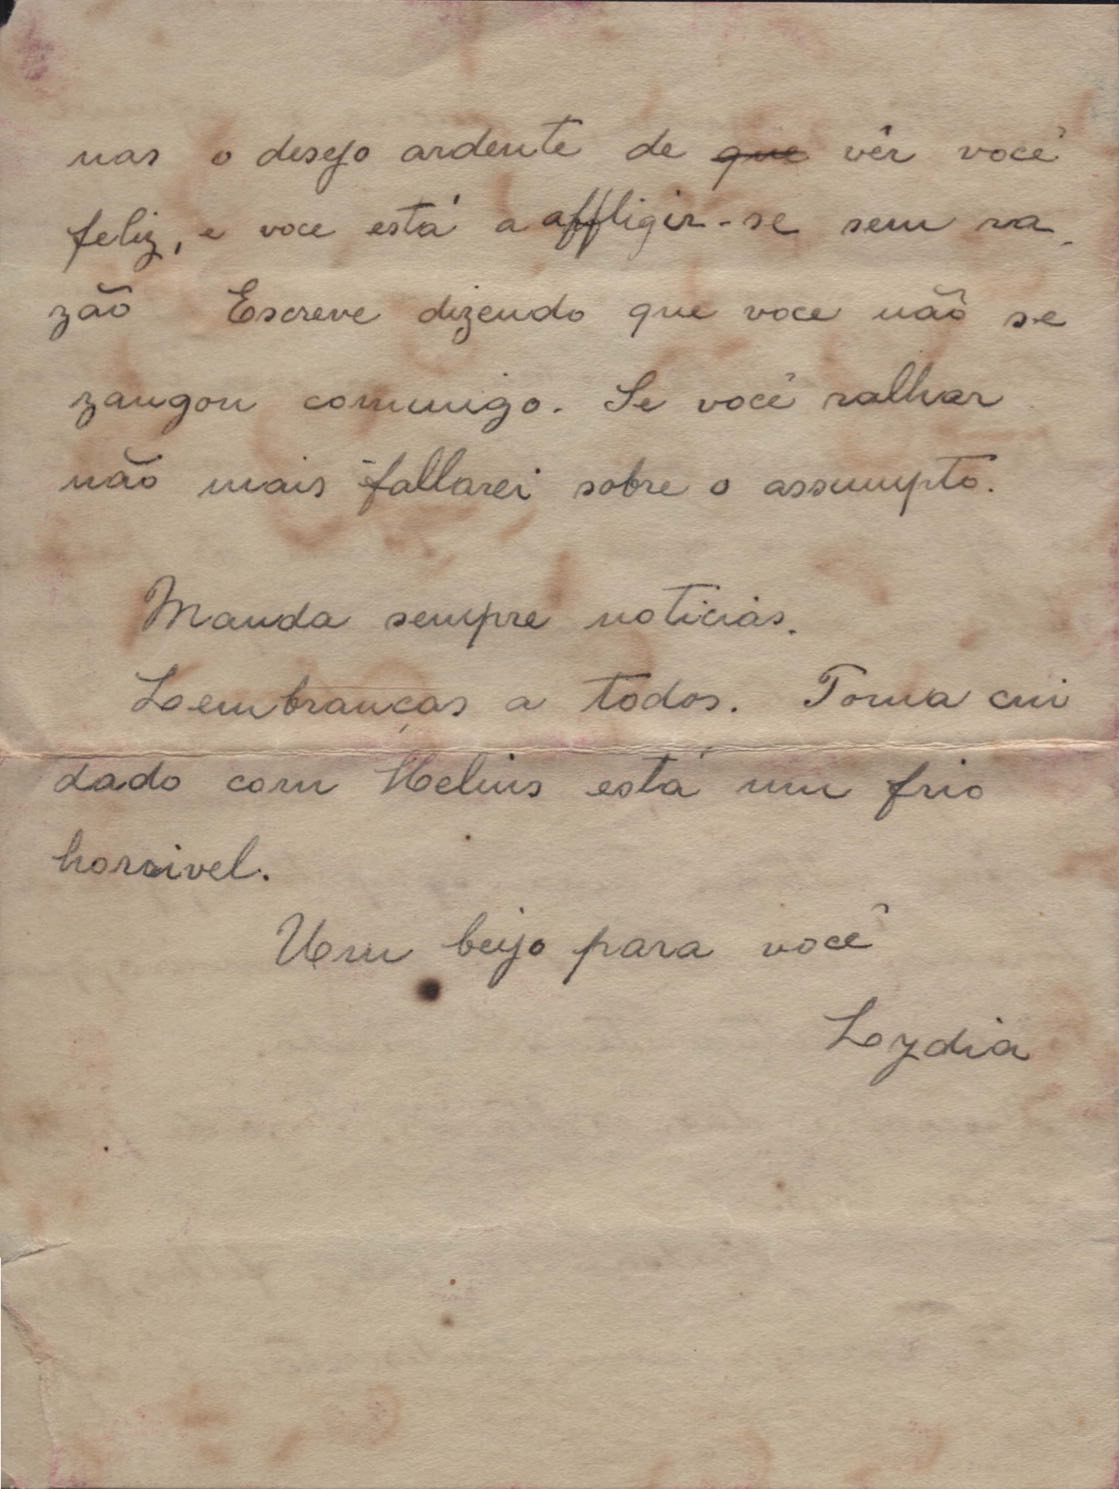 nas o desejo ardente de que vêr você
feliz, e voce está a affligir-se sem ra-
zão Escreve dizendo que voce não se
zangou commigo. Se você ralhar
não mais fallarei sobre o assumpto.
Manda sempre noticias.
Lembranças a todos. Toma cui
dado com Helius está um frio
horrivel.
Um beijo para você
Lydia